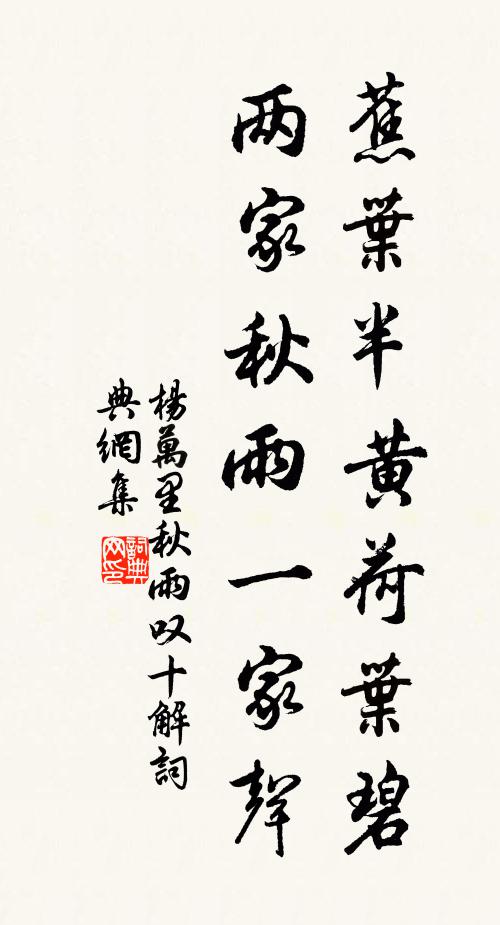 蕉葉半黄荷葉碧
两家秋雨一家聲
楊萬里秋雨叹十解詞
典網集
詞典
网印